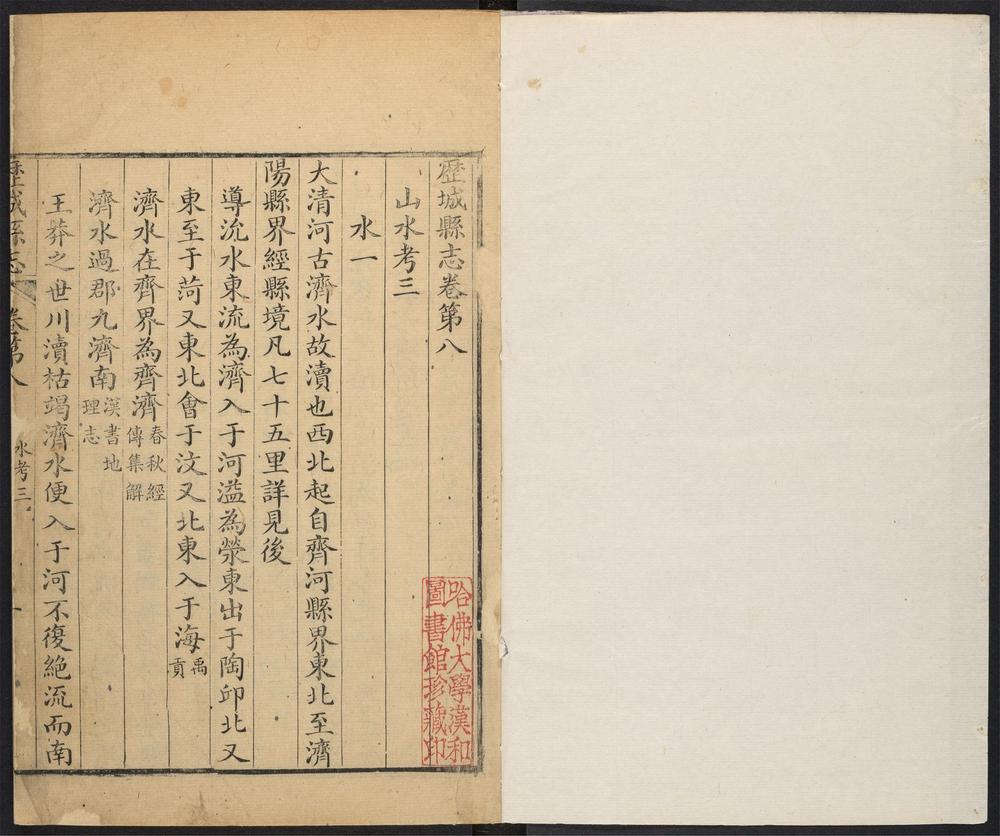 歷城縣志卷第八
山水考三
水一
大清河古濟水故瀆也西北起自齊河縣界東北至濟
陽縣界經縣境凡七十五里詳見後
導沇水東流為濟入于河溢為滎東出于陶邱北又
東至于菏又東北會于汶又北東入于海禹貢
濟水在齊界為齊濟春秋經傳集解
濟水過郡九濟南漢書地理志
王莽之世川瀆枯竭濟水便入于河不復絕流而南
歷城縣志 卷第八 水考三 一
哈佛大學漢和
圖書館珍藏印